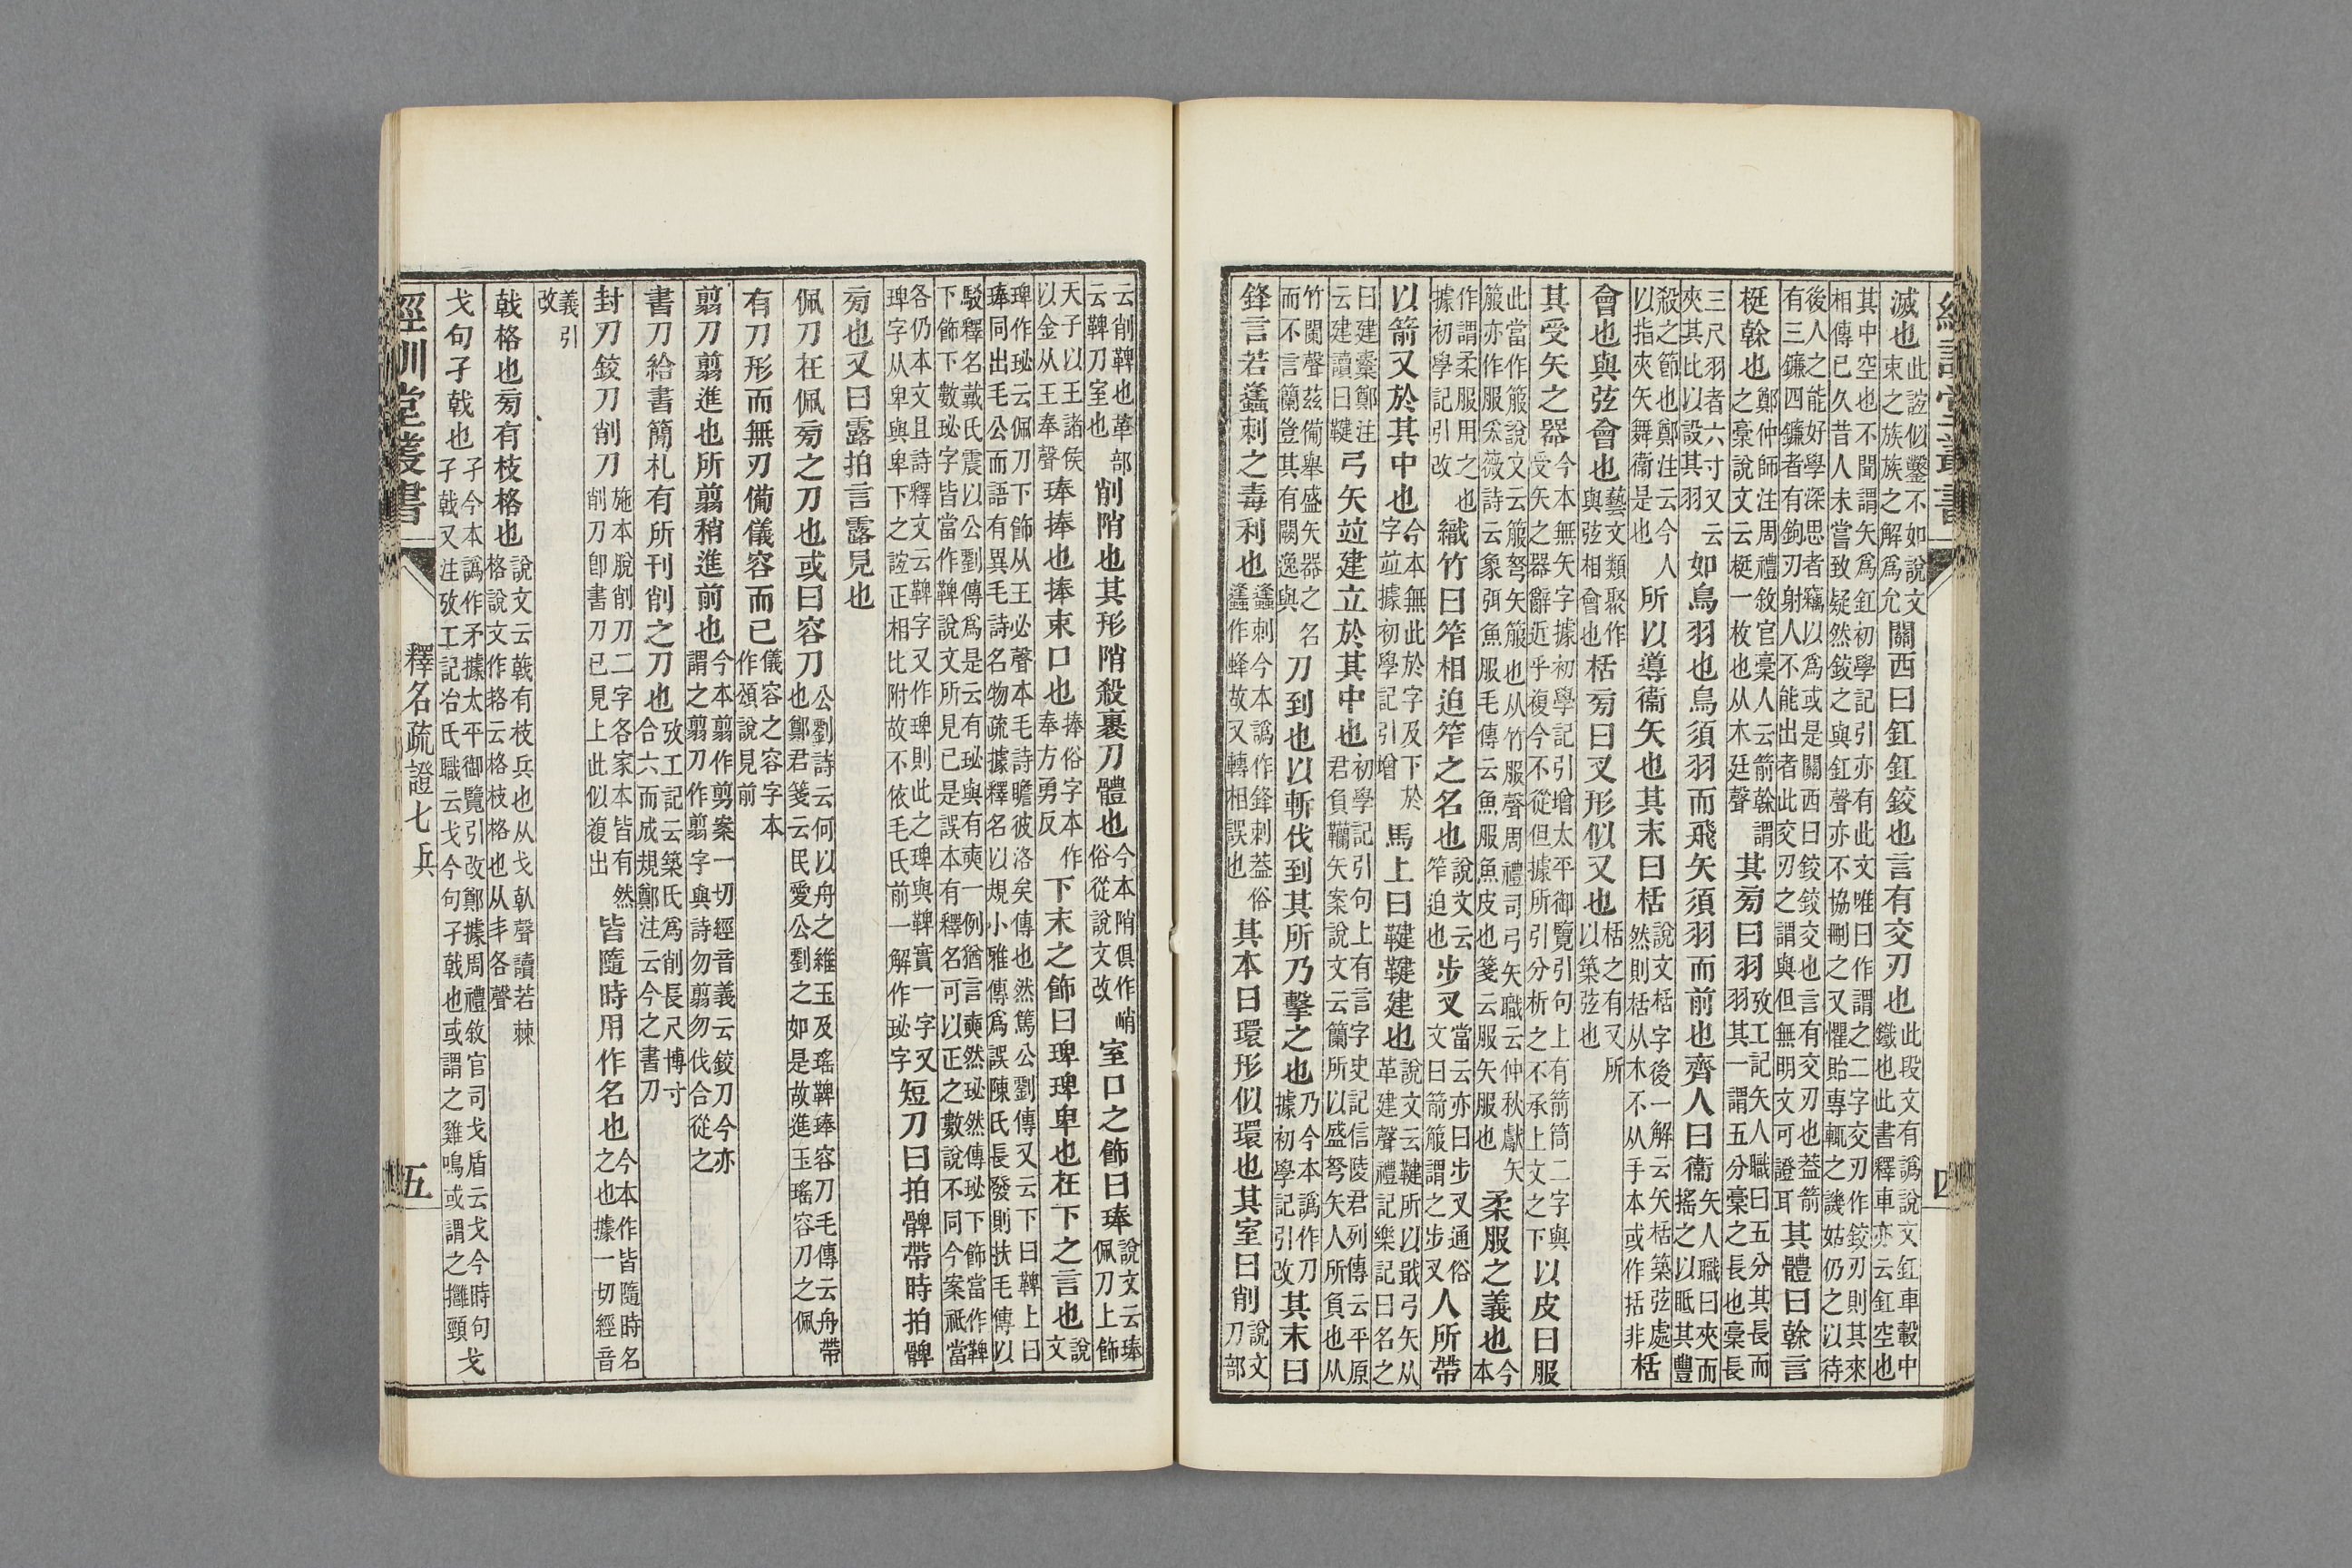 滅也此詿似鑿不如說文束之族族之解爲允關西曰釭釭鉸也言有交刃也此段文有譌說文釭車轂中鐵也此書釋車亦云釭空也
其中空也不聞謂矢爲釭初學記引亦有此文唯曰作謂之二字交刃作鉸刃則其來相傳已久昔人未嘗致疑然鉸之與釭聲亦不協刪之又懼貽專輒之譏姑仍之以待
後人之能好學深思者竊以爲或是關西曰鉸鉸交也言有交刃也蓋箭有三鐮四鐮者有鉤刃射人不能出者此交刃之謂與但無明文可證耳其體曰榦言
梃榦也鄭仲師注周禮敘官稾人云箭榦謂之稾說文云梃一枚也从木廷聲其旁曰羽攷工記矢人職曰五分其長而羽其一謂五分稾之長也稾長
三尺羽者六寸又云夾其比以設其羽如鳥羽也鳥須羽而飛矢須羽而前也齊人曰衞矢人職曰夾而搖之以眂其豐
殺之節也鄭注云今人以指夾矢舞衞是也所以導衞矢也其末曰栝說文栝字後一解云矢栝築弦處然則栝从木不从手本或作括非栝
會也與弦會也藝文類聚作與弦相會也栝旁曰叉形似叉也栝之有叉所以築弦也
其受矢之器今本無矢字據初學記引增太平御覽引句上有箭筒二字與受矢之器辭近乎複今不從但據所引分析之不承上文之下以皮曰服
此當作箙說文云箙弩矢箙也从竹服聲周禮司弓矢職云仲秋獻矢箙亦作服采薇詩云象弭魚服毛傳云魚服魚皮也箋云服矢服也柔服之義也今本
作謂柔服用之也據初學記引改織竹曰笮相迫笮之名也說文云笮迫也步叉當云亦曰步叉通俗文曰箭箙謂之步叉人所帶
以箭叉於其中也今本無此於字及下於字竝據初學記引增馬上曰鞬鞬建也說文云鞬所以戢弓矢从革建聲禮記樂記曰名之
曰建櫜鄭注云建讀曰鞬弓矢竝建立於其中也初學記引句上有言字史記信陵君列傳云平原君負韊矢案說文云籣所以盛弩矢人所負也从
竹闌聲茲備舉盛矢器之名而不言籣豈其有闕逸與刀到也以斬伐到其所乃擊之也乃今本譌作刀據初學記引改其末曰
鋒言若蠭刺之毒利也蠭刺今本譌作鋒刺蓋俗蠭作蜂故又轉相誤也其本曰環形似環也其室曰削說文刀部
云削鞞也革部云鞞刀室也削陗也其形陗殺裹刀體也今本陗俱作峭俗從說文改室口之飾曰琫說文云琫佩刀上飾
天子以玉諸侯以金从王奉聲琫捧也捧束口也捧俗字本作奉方勇反下末之飾曰琕琕卑也在下之言也說文
琕作珌云佩刀下飾从王必聲本毛詩瞻彼洛矣傳也然篤公劉傳又云下曰鞞上曰琫同出毛公而語有異毛詩名物疏據釋名以規小雅傳爲誤陳氏長發則扶毛傳以
駁釋名戴氏震以公劉傳爲是云有珌與有奭一例猶言奭然珌然傳珌下飾當作鞞下飾下數珌字皆當作鞞說文所見已是誤本有釋名可以正之數說不同今案祇當
各仍本文且詩釋文云鞞字又作琕則此之琕與鞞實一字又琕字从卑與卑下之詿正相比附故不依毛氏前一解作珌字短刀曰拍髀帶時拍髀
旁也又曰露拍言露見也
佩刀在佩旁之刀也或曰容刀公劉詩云何以舟之維玉及瑤鞞琫容刀毛傳云舟帶也鄭君箋云民愛公劉之如是故進玉瑤容刀之佩
有刀形而無刃備儀容而已儀容之容字本作頌說見前
翦刀翦進也所翦稍進前也今本翦作剪案一切經音義云鉸刀今亦謂之翦刀作翦字與詩勿翦勿伐合從之
書刀給書簡札有所刊削之刀也攷工記云築氏爲削長尺博寸合六而成規鄭注云今之書刀
封刀鉸刀削刀施本脫削刀二字各家本皆有然削刀卽書刀已見上此似複出皆隨時用作名也今本作皆隨時名之也據一切經音
義引改
戟格也旁有枝格也說文云𢧢有枝兵也从戈倝聲讀若棘格說文作挌云格枝格也从丰各聲
戈句孑戟也孑今本譌作矛據太平御覽引改鄭據周禮敘官司戈盾云戈今時句孑戟又注攷工記冶氏職云戈今句孑戟也或謂之雞鳴或謂之擁頸戈
經訓堂叢書
釋名疏證七 兵
五